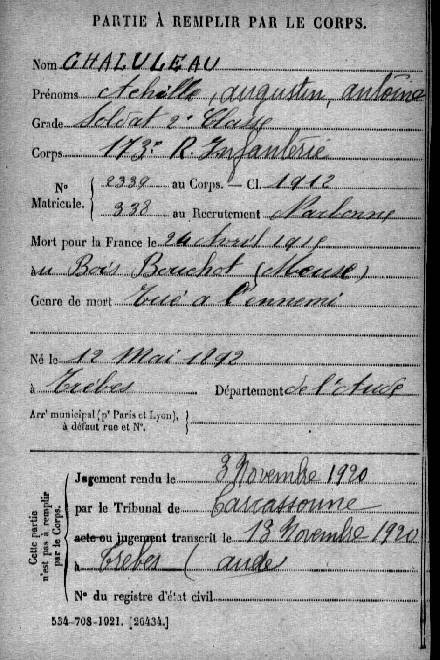 PARTIE À REMPLIR PAR LE CORPS.
Nom CHALULEAU
Prénoms Achille, augustin, antoine
Grade Soldat 2e Classe
Corps 173e R. Infanterie
No Matricule. 2339 au Corps. — Cl. 1912
338 au Recrutement Narbonne
Mort pour la France le 24 Avril 1915
au Bois Bouchot (Meuse)
Genre de mort Tué a l'ennemi
Né le 12 Mai 1892
à Trèbes Département de l'Aude
Arrt municipal (pr Paris et Lyon), à défaut rue et No.
Cette partie n'est pas à remplir par le Corps.
Jugement rendu le 3 Novembre 1920
par le Tribunal de Carcassonne
acte ou jugement transcrit le 13 Novembre 1920
à Trèbes (aude
No du registre d'état civil
534-708-1921. [26434.]